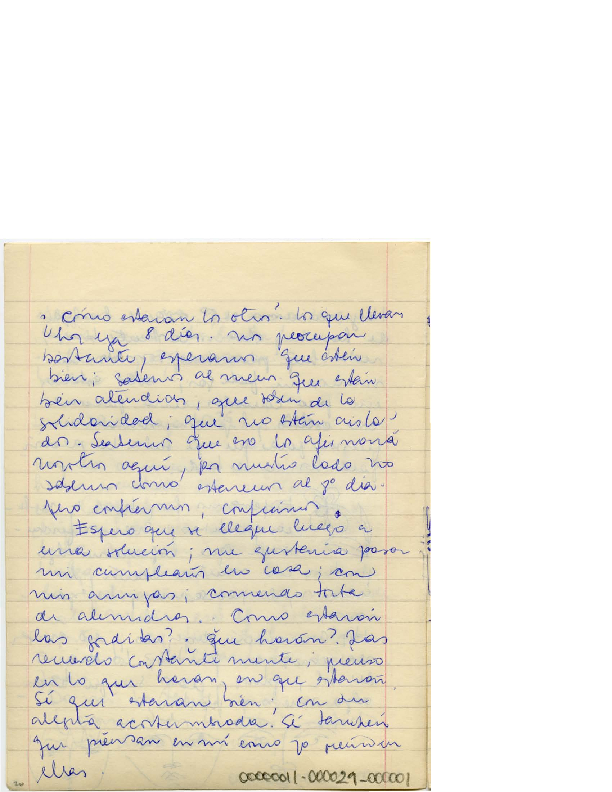 Cómo estaran los otros. los que llevan
hoy ya 8 días. nos preocupan
bastante, esperamos que estén
bien; sabemos al menos que están
bien atendidos, que saben de la
solidaridad; que no están aisla-
dos. Sentimos que eso los afirmará
nosotros aquí, por nuestro lado no
sabemos como estaremos al 8º día.
pero confiemos, confiemos.
Espero que se llegue luego a
una solución; me gustaria pasar
mi cumpleaños en casa; con
mis amigas; comiendo torta
de almendras.. Como estarán
las gorditas?. que harán? Las
recuerdo constantemente; pienso
en lo que harán, en que estarán.
Sé que estaran bien; con su
alegria acostumbrada. Sé también
que piensan en mí como yo en
ellas.
00000011-000029-000001